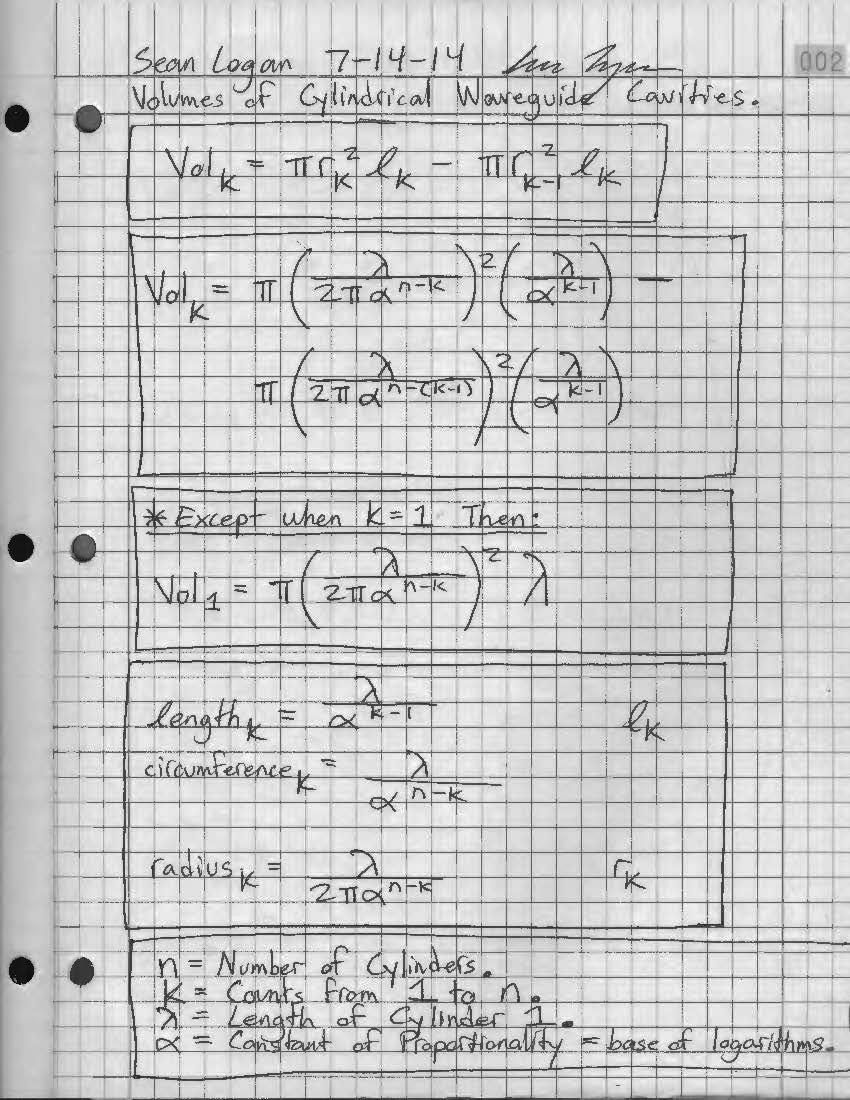 Sean Logan 7-14-14
002
Volumes of Cylindrical Waveguide Cavities.
Vol_k = π r_k^2 l_k − π r_{k-1}^2 l_k
Vol_k = π (λ / 2πα^{n-k})^2 (λ / α^{k-1}) −
π (λ / 2πα^{n-(k-1)})^2 (λ / α^{k-1})
* Except when k=1 Then:
Vol_1 = π (λ / 2πα^{n-k})^2 λ
length_k = λ / α^{k-1} l_k
circumference_k = λ / α^{n-k}
radius_k = λ / 2πα^{n-k} r_k
n = Number of Cylinders.
k = Counts from 1 to n.
λ = Length of Cylinder 1.
α = Constant of Proportionality = base of logarithms.